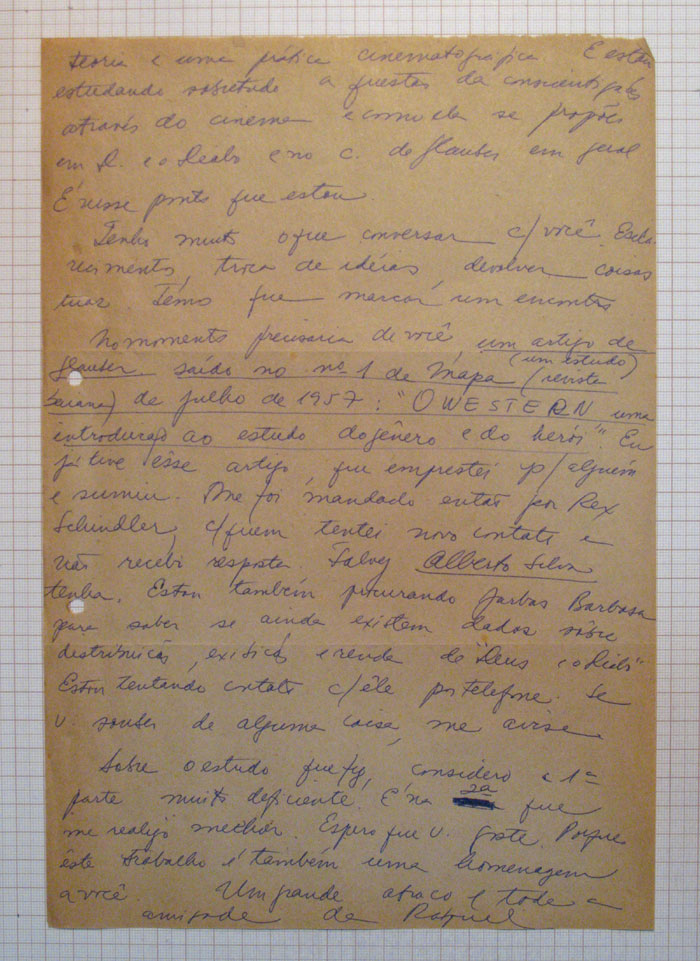 teoria e uma prática cinematográfica E estou
estudando sobretudo a questão da conscientização
através do cinema e como ela se propõe
em D. e o Diabo e no c. de Glauber em geral
É nesse ponto que estou.
Tenho muito o que conversar c/ você. Escla
recimentos, troca de idéias, devolver coisas
tuas. Temos que marcar um encontro
No momento precisaria de você um artigo de
(um estudo)
Glauber saído no nº 1 de Mapa (revista
baiana) de julho de 1957: "O WESTERN uma
introdução ao estudo do gênero e do herói". Eu
já tive êsse artigo, que emprestei p/ alguém
e sumiu. Me foi mandado então por Rex
Schindler, c/ quem tentei novo contato e
não recebi resposta. Talvez Alberto Silva
tenha. Estou também procurando Jarbas Barbosa
para saber se ainda existem dados sôbre
distribuição, exibição e renda de "Deus e o Diabo"
Estou tentando contato c/ êle por telefone. Se
v. souber de alguma coisa, me avise.
Sobre o estudo que fiz, considero a 1ª
parte muito deficiente. É na 2ª que
me realizo melhor. Espero que v. goste. Porque
êste trabalho é também uma homenagem
a você. Um grande abraço e toda a
amizade da Raquel